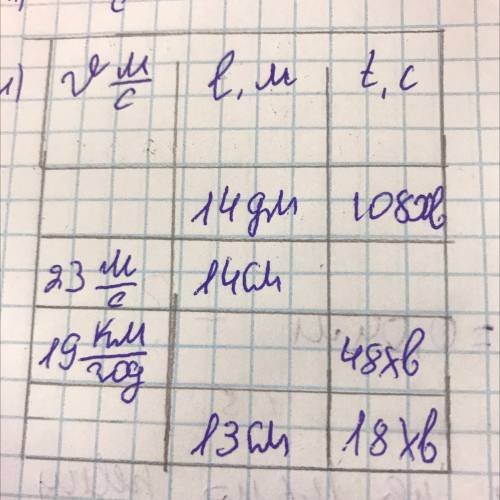 1) 𝜗 м/с l, м t, с
14дм 108хв
23 м/с 14см
19 км/год 48хв
13см 18хв